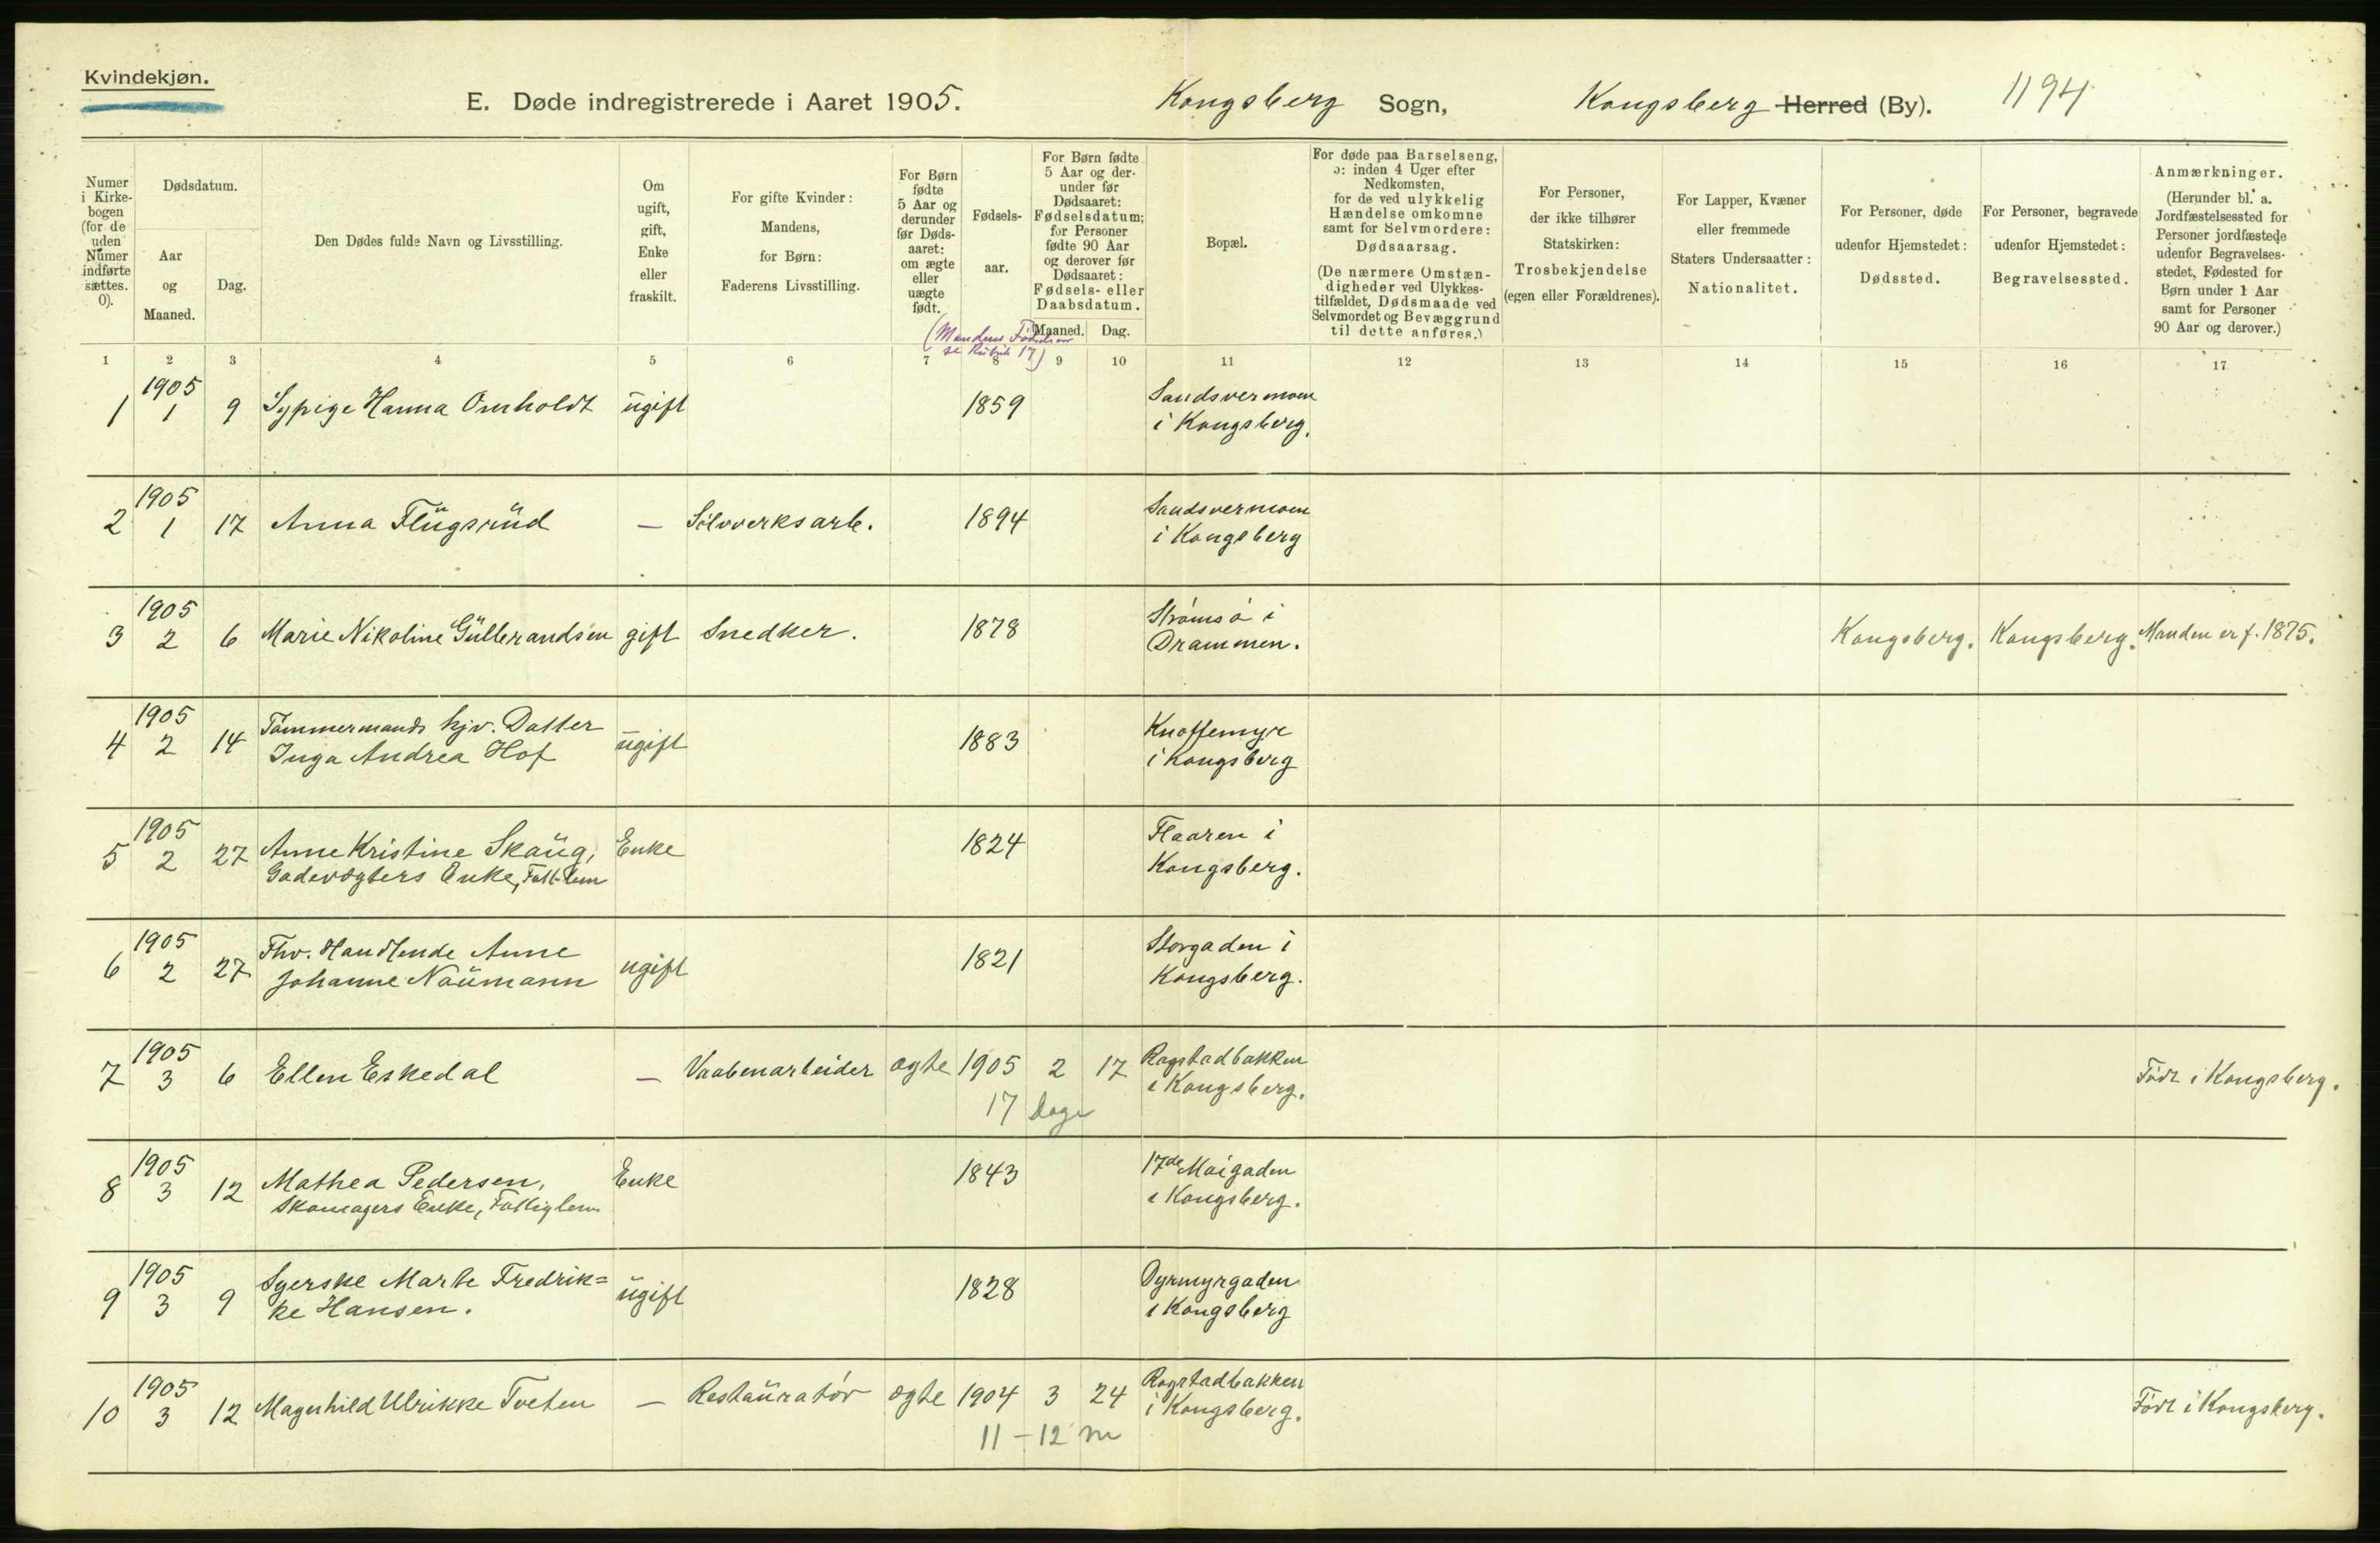 Kvindekjøn.
E. Døde indregistrerede i Aaret 1905. Kongsberg Sogn, Kongsberg Herred (By). 1194
Numer i Kirkebogen (for de uden Numer indførte sættes. 0).
Dødsdatum.
Aar og Maaned.
Dag.
Den Dødes fulde Navn og Livsstilling.
Om ugift, gift, Enke eller fraskilt.
For gifte Kvinder: Mandens, for Børn: Faderens Livsstilling.
For Børn fødte 5 Aar og derunder før Dødsaaret: om ægte eller uægte født.
Fødselsaar.
For Børn fødte 5 Aar og derunder før Dødsaaret: Fødselsdatum; for Personer fødte 90 Aar og derover før Dødsaaret: Fødsels- eller Daabsdatum.
Maaned. Dag.
Bopæl.
For døde paa Barselseng, ɔ: inden 4 Uger efter Nedkomsten, for de ved ulykkelig Hændelse omkomne samt for Selvmordere: Dødsaarsag.
(De nærmere Omstændigheder ved Ulykkestilfældet, Dødsmaade ved Selvmordet og Bevæggrund til dette anføres.)
For Personer, der ikke tilhører Statskirken: Trosbekjendelse (egen eller Forældrenes).
For Lapper, Kvæner eller fremmede Staters Undersaatter: Nationalitet.
For Personer, døde udenfor Hjemstedet: Dødssted.
For Personer, begravede udenfor Hjemstedet: Begravelsessted.
Anmærkninger.
(Herunder bl. a. Jordfæstelsessted for Personer jordfæstede udenfor Begravelsesstedet, Fødested for Børn under 1 Aar samt for Personer 90 Aar og derover.)
(Mandens Fødselsaar
se Rubrik 17)
1 2 3 4 5 6 7 8 9 10 11 12 13 14 15 16 17
1 1905 1 9 Sypige Hanna Omholdt ugift 1859 Sandsvermoen
i Kongsberg.
2 1905 1 17 Anna Flugsrud — Sølvverksarb. 1894 Sandsvermoen
i Kongsberg
3 1905 2 6 Marie Nikoline Gulbrandsen gift Snedker. 1878 Strømsø i
Drammen. Kongsberg. Kongsberg. Manden er f. 1875.
4 1905 2 14 Tømmermands hjv. Datter
Inga Andrea Hof ugift 1883 Knoffemyr
i Kongsberg
5 1905 2 27 Anne Kristine Skaug, Enke 1824 Flaaren i
Gadevogters Enke, Fatt. lem Kongsberg.
6 1905 2 27 Fhv. Handlende Anne
Johanne Naumann ugift 1821 Storgaden i
Kongsberg.
7 1905 3 6 Ellen Eskedal — Vaabenarbeider ægte 1905 2 17 Rogstadbakken
i Kongsberg. Født i Kongsberg.
17 Dage
8 1905 3 12 Mathea Pedersen, Enke 1843 17de Maigaden
Skomagers Enke, Fattiglem i Kongsberg.
9 1905 3 9 Syerske Marte Fredrik=
ke Hansen. ugift 1828 Dyrmyrgaden
i Kongsberg
10 1905 3 12 Magnhild Ulrikke Tveten — Restauratør ægte 1904 3 24 Rogstadbakken
i Kongsberg. Født i Kongsberg.
11 – 12 m